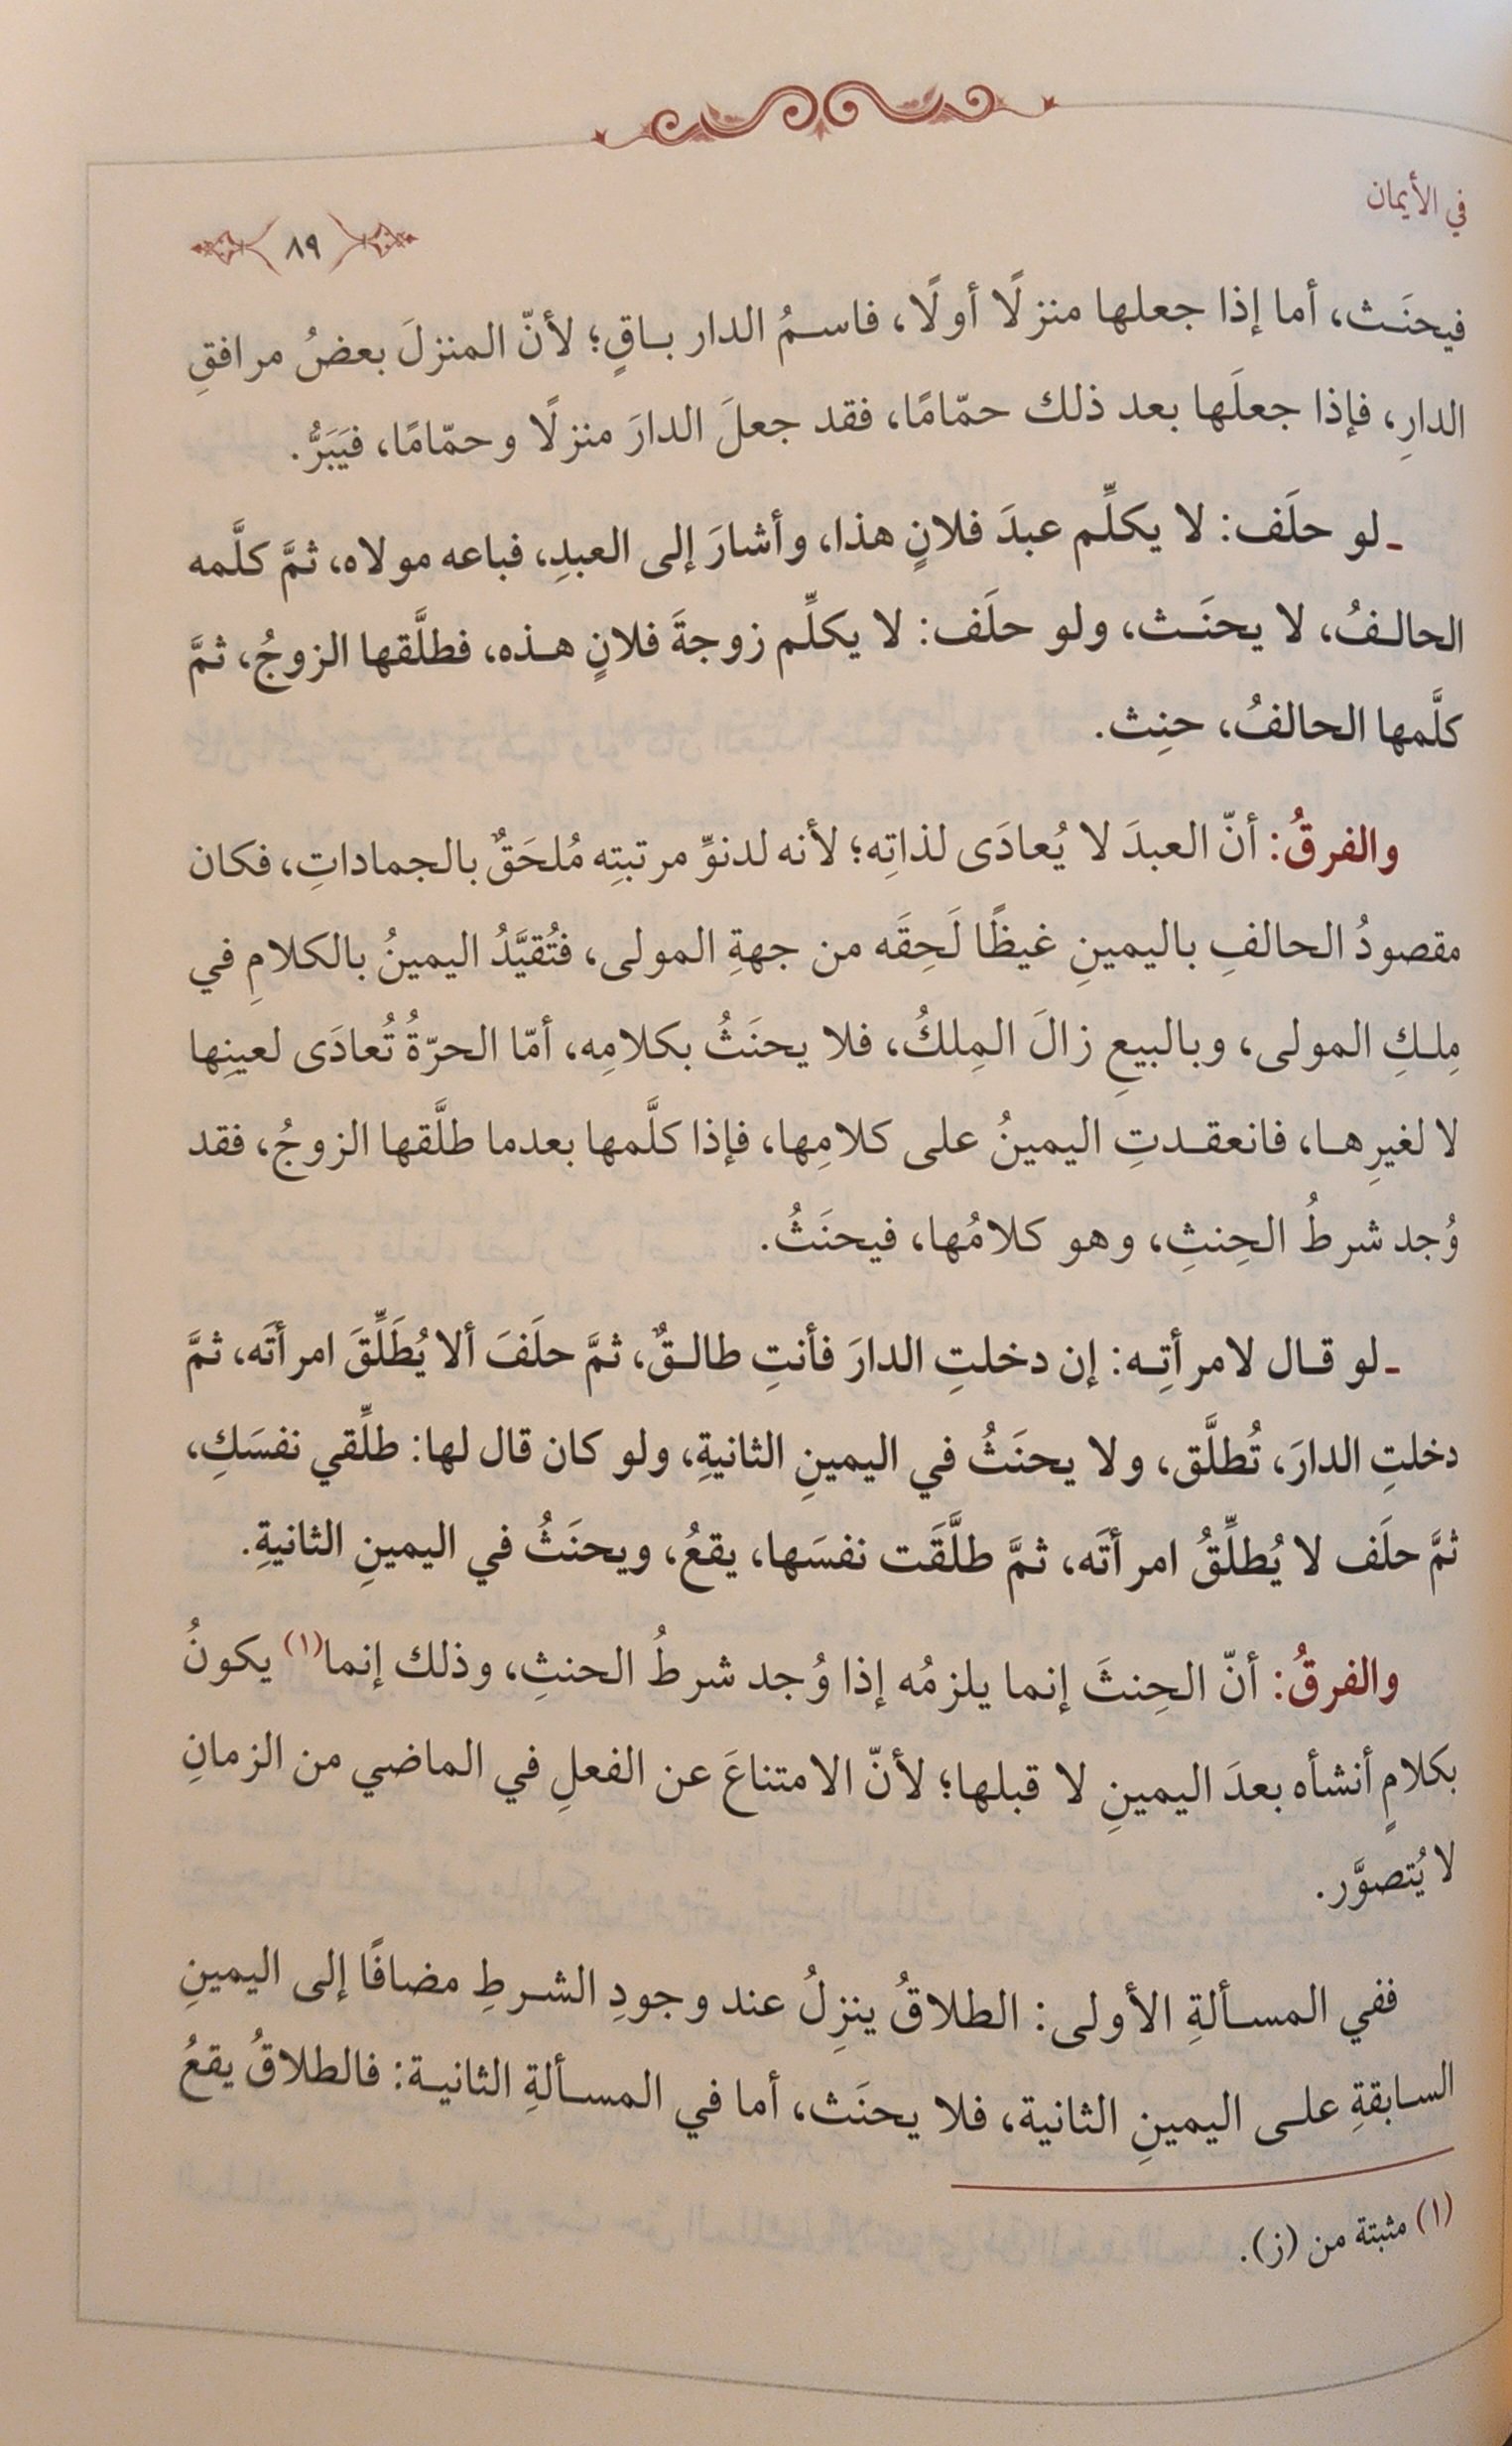 في الأيمان
٨٩
فيحنَـث، أما إذا جعلها منزلًا أولًا، فاسـمُ الدار بـاقٍ؛ لأنّ المنزلَ بعضُ مرافقِ
الدارِ، فإذا جعلَها بعد ذلك حمّامًا، فقد جعلَ الدارَ منزلًا وحمّامًا، فيَبَرُّ.
ـ لو حلَف: لا يكلِّم عبدَ فلانٍ هذا، وأشارَ إلى العبدِ، فباعه مولاه، ثمَّ كلَّمه
الحالـفُ، لا يحنَـث، ولو حلَف: لا يكلِّم زوجةَ فلانٍ هـذه، فطلَّقها الزوجُ، ثمَّ
كلَّمها الحالفُ، حنِث.
والفرقُ: أنّ العبدَ لا يُعادَى لذاتِه؛ لأنه لدنوِّ مرتبتِه مُلحَقٌ بالجماداتِ، فكان
مقصودُ الحالفِ باليمينِ غيظًا لَحِقَه من جهةِ المولى، فتُقيَّدُ اليمينُ بالكلامِ في
مِلـكِ المولى، وبالبيعِ زالَ المِلكُ، فلا يحنَثُ بكلامِه، أمّا الحرّةُ تُعادَى لعينِها
لا لغيرِهـا، فانعقـدتِ اليمينُ على كلامِها، فإذا كلَّمها بعدما طلَّقها الزوجُ، فقد
وُجد شرطُ الحِنثِ، وهو كلامُها، فيحنَثُ.
ـ لو قـال لامرأتِـه: إن دخلتِ الدارَ فأنتِ طالـقٌ، ثمَّ حلَفَ ألا يُطَلِّقَ امرأتَه، ثمَّ
دخلتِ الدارَ، تُطلَّق، ولا يحنَثُ في اليمينِ الثانيةِ، ولو كان قال لها: طلِّقي نفسَكِ،
ثمَّ حلَف لا يُطلِّقُ امرأتَه، ثمَّ طلَّقَت نفسَها، يقعُ، ويحنَثُ في اليمينِ الثانيةِ.
والفرقُ: أنّ الحِنثَ إنما يلزمُه إذا وُجد شرطُ الحنثِ، وذلك إنما(١) يكونُ
بكلامٍ أنشأه بعدَ اليمينِ لا قبلها؛ لأنّ الامتناعَ عن الفعلِ في الماضي من الزمانِ
لا يُتصوَّر.
ففي المسـألةِ الأولى: الطلاقُ ينزِلُ عند وجودِ الشـرطِ مضافًا إلى اليمينِ
السـابقةِ علـى اليمينِ الثانية، فلا يحنَث، أما في المسـألةِ الثانيـة: فالطلاقُ يقعُ
(١) مثبتة من (ز).